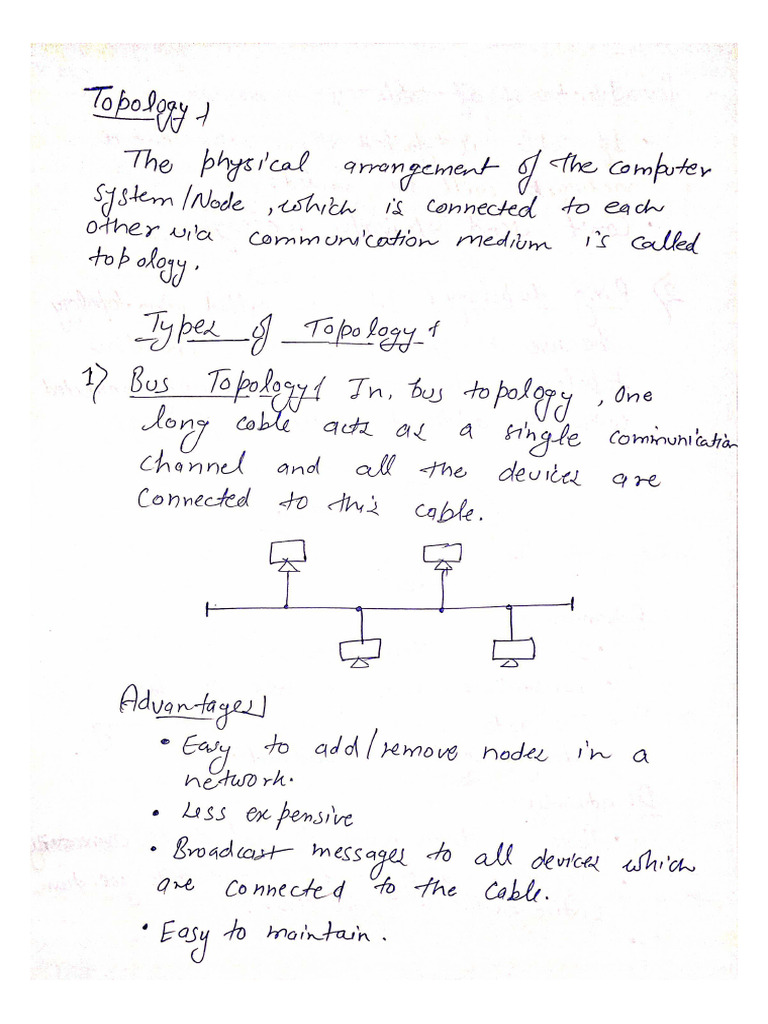 Topology
The physical arrangement of the computer
system/Node, which is connected to each
other via communication medium is called
topology.
Types of Topology
1) Bus Topology In, bus topology, one
long cable acts as a single communication
channel and all the devices are
Connected to this cable.
Advantages
• Easy to add/remove nodes in a
network.
• Less expensive
• Broadcast messages to all devices which
are connected to the cable.
• Easy to maintain.